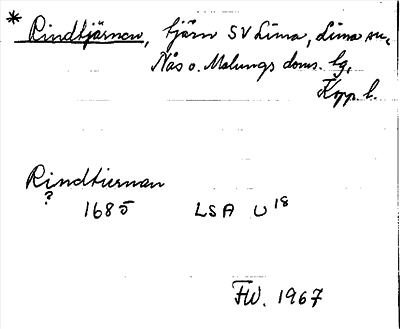 * Rindtjärnen, tjärn SV Lima, Lima sn,
Nås o. Malungs doms. hg,
Kopp. l.
Rindtiernan
? 1685 LSA U18
FW. 1967